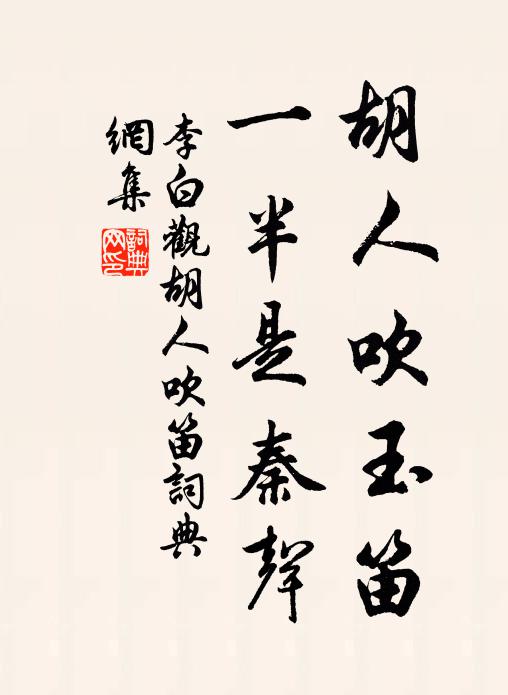 胡人吹玉笛
一半是秦聲
李白觀胡人吹笛詞典
網集
詞典
网印